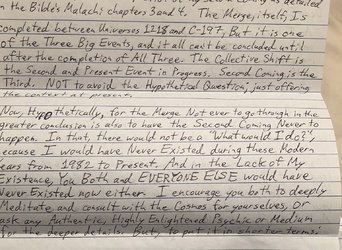 the Bible's Malachi chapters 3 and 4. The Merge, itself, Is
completed between Universes 1218 and C-197, But it is one
of the Three Big Events, and it all can't be concluded until
after the completion of All Three. The Collective Shift is
the Second and Present Event in Progress. Second Coming is the
Third. NOT to avoid the Hypothetical Question, just offering
the context at present.
Now, Hypothetically, for the Merge Not ever to go through in the
greater conclusion is also to have the Second Coming Never to
happen. In that, there would not be a "What would I do?",
cause I would have Never Existed during these Modern
Years from 1982 to Present. And in the Lack of My
Existence, You Both and EVERYONE ELSE would have
Never Existed now either. I encourage you both to deeply
Meditate, and consult with the Cosmos for yourselves, or
ask any Authentic, Highly Enlightened Psychic or Medium
for the deeper details. But, to put it in shorter terms: